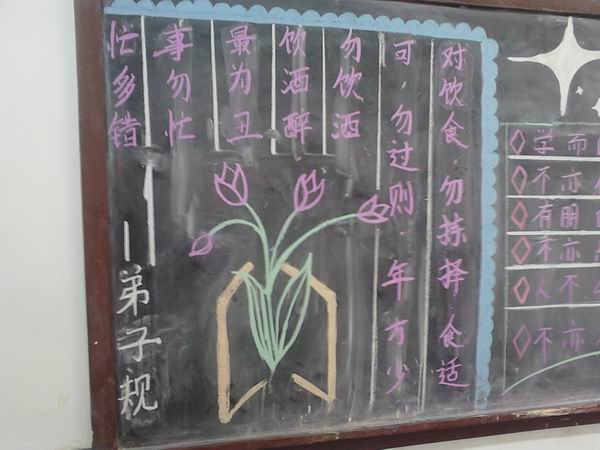 对饮食，勿拣择，食适
可，勿过则，年方少
勿饮酒
饮酒醉
最为丑
事勿忙
忙多错
——弟子规
学而
不亦
有朋
不亦
人不
不亦